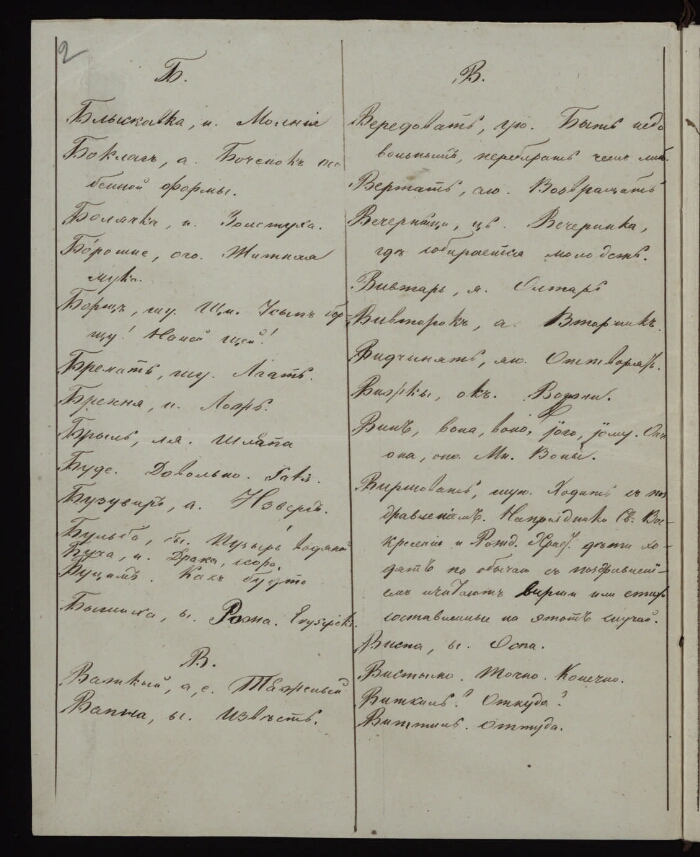 2
Б.
Блыскавка, и. Молнія
Боклагъ, а. Боченокъ осо
бенной формы.
Болячка, и. Золотуха.
Бо́рошно, ого. Житная
мука.
Борщъ, щу. Щи. Усыпь бор-
щу! Налей щей!
Брехать, шу. Лгать.
Брехня, и. Ложь.
Брыль, ля. Шляпа
Буде. Довольно.
Бузувиръ, а. Извергъ.
Бульба, бы. Пузырь водяной
Буча, и. Драка, ссора.
Буцимъ. Какъ будто
Бешиха, ы. Рожа.
В.
Важкый, а, е. Тяжелый
Вапна, ы. Известь.
В.
Вередовать, ую. Быть недо
вольнымъ, перебирать чемъ либо
Вертать, аю. Возвращать
Вечерныци, ць. Вечеринка,
гдѣ собирается молодежь.
Вивтарь, я. Олтарь
Вивторокъ, а. Вторникъ.
Видчынять, яю. Отворять.
Вижкы, окъ. Вожжи.
Винъ, вона, воно, його, йому. Онъ
она, оно. Мн. Воны.
Виршовать, шую. Ходить съ поз
дравленіемъ. На праздники Св. Вос
кресенія и Рожд. Хрис. дѣти хо
дятъ по обычаю съ поздравленіе
емъ и читаютъ вирши или стихи
составленные на этотъ случай.
Виспа, ы. Оспа.
Вистыно. Точно. Конечно.
Виткиль? Откуда?
Виттиль. Оттуда.